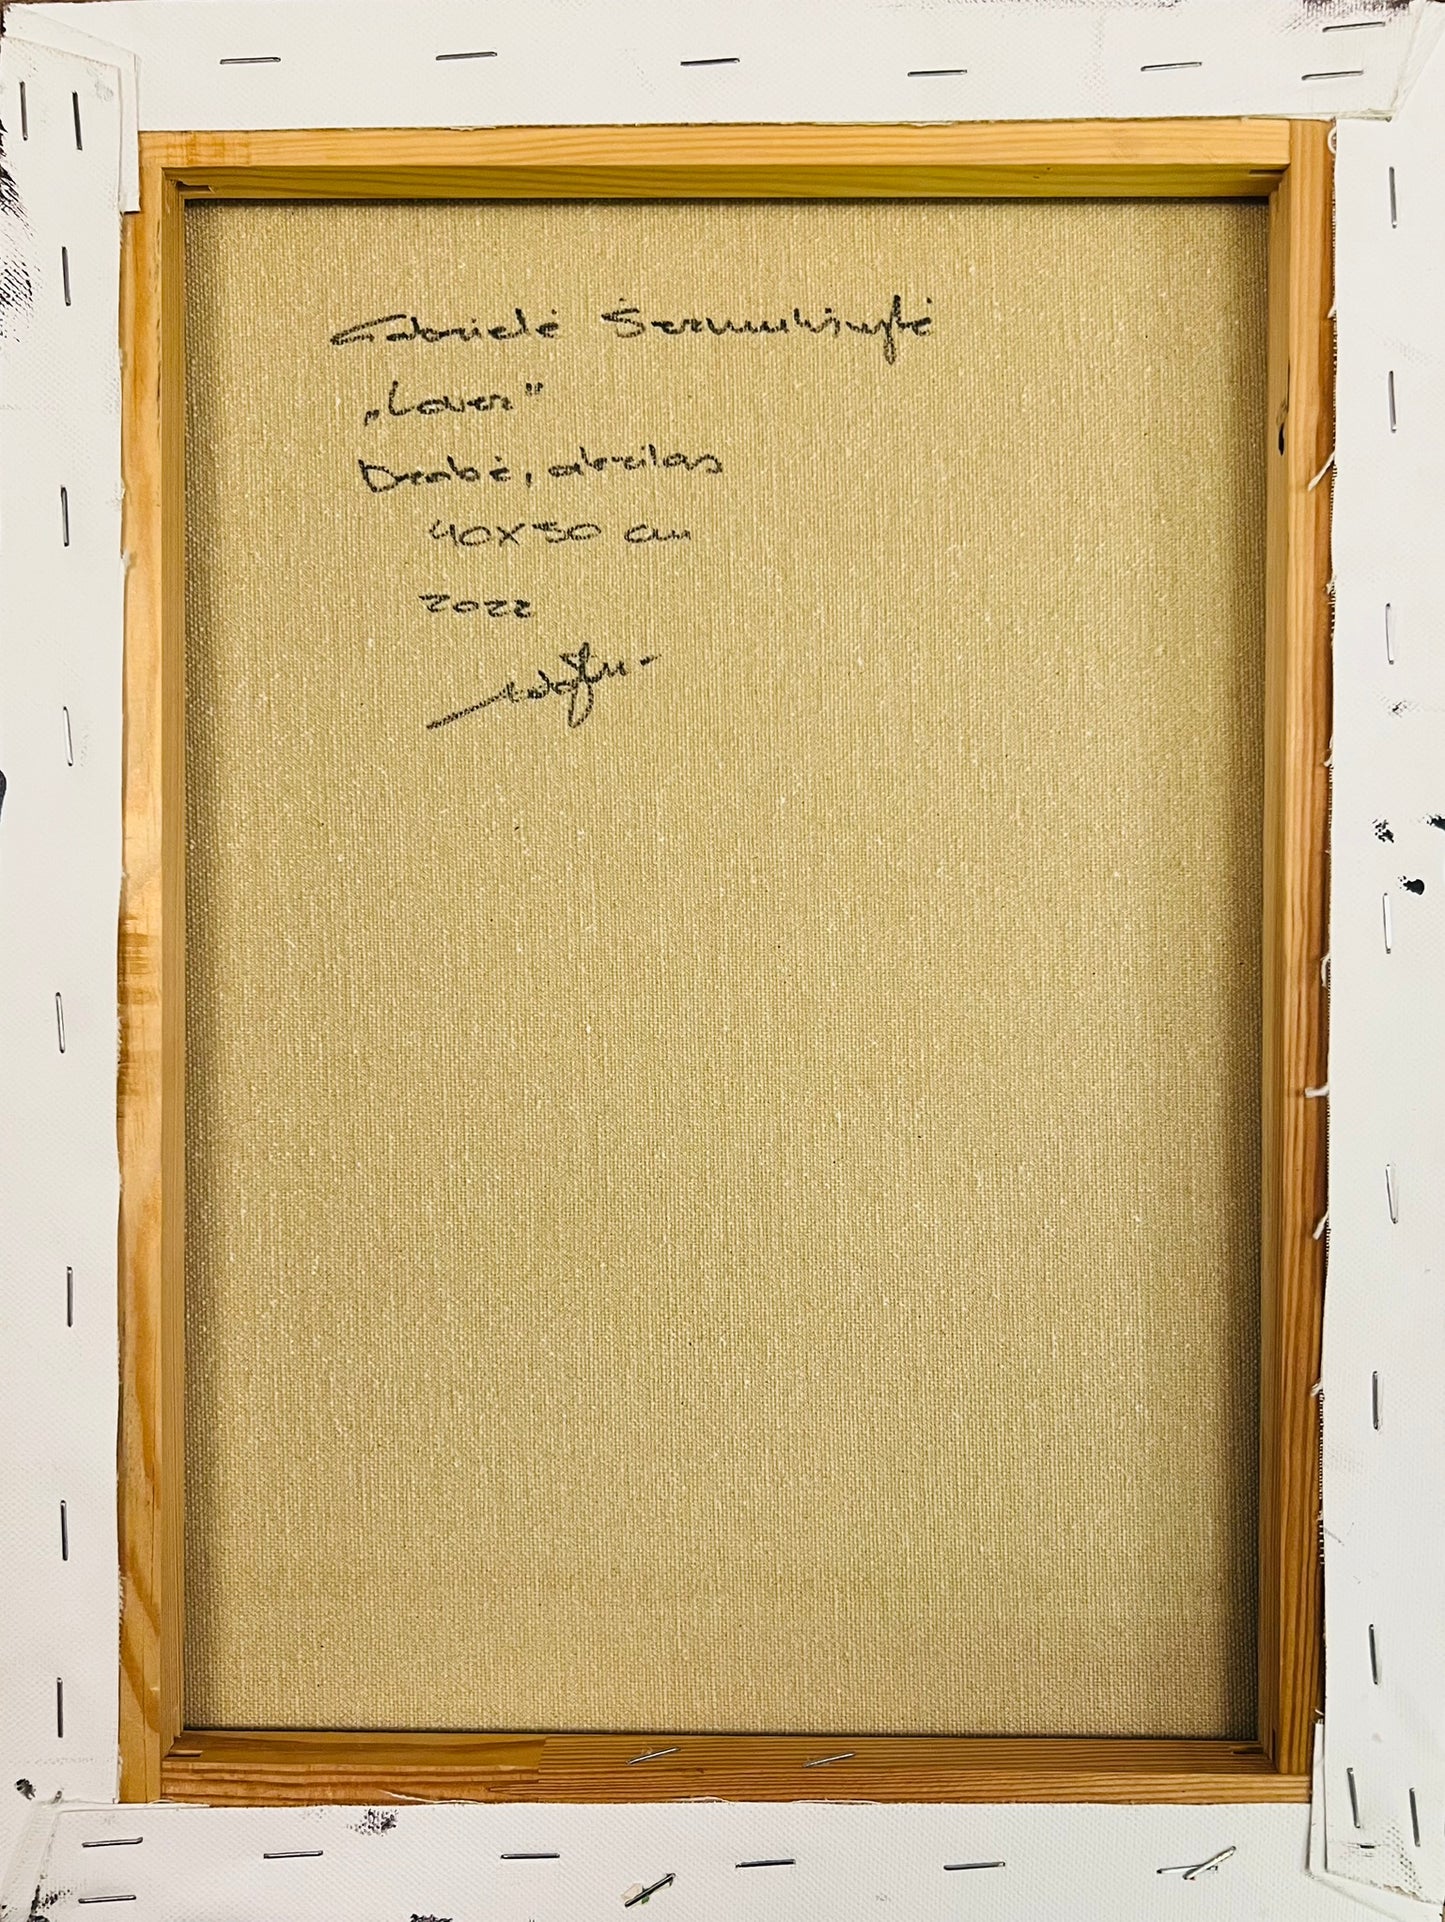 Gabrielė Šermukšnytė
„Lover"
Drobė, akrilas
40x30 cm
2022